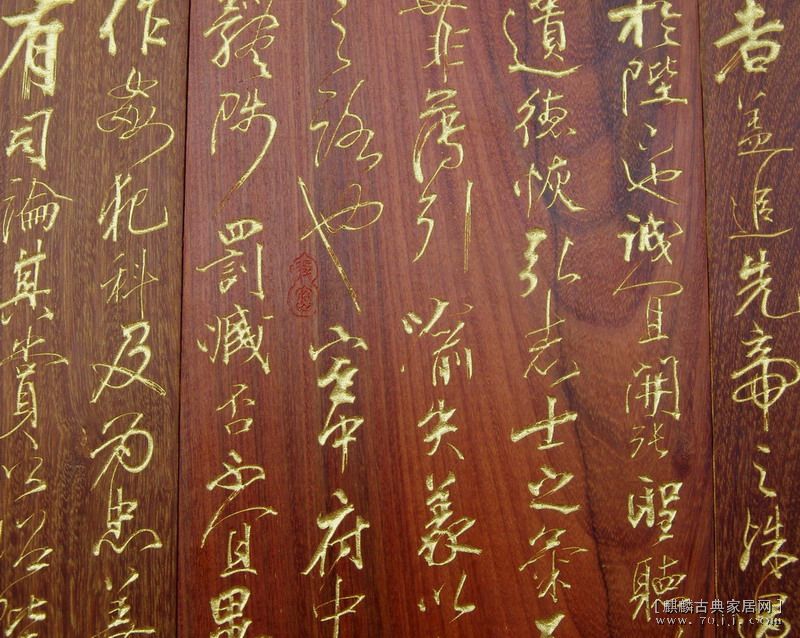 者盖追先帝之殊
於陛下也誠宜開張聖聽
遺德恢弘志士之氣
菲薄引喻失義以
之路也宮中府中
體陟罰臧否不宜異
作姦犯科及为忠善
有司論其賞以昭
[麒麟古典家居网]
www.70jj.com